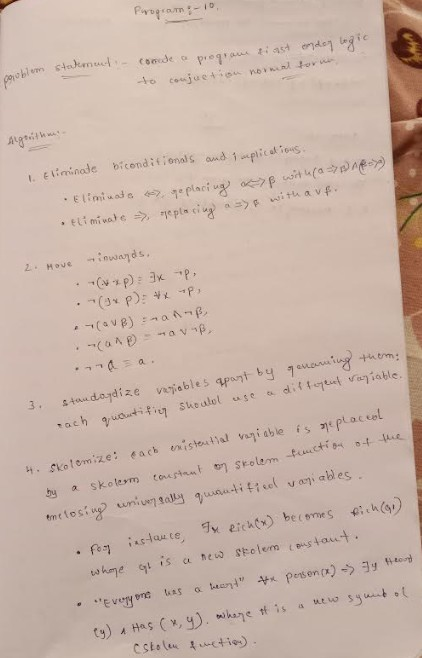 Program:- 10.
problem statement:- create a program first order logic
to conjuction normal form.
Algorithm:-
1. Eliminate biconditionals and implications.
• Eliminate ⇔, replacing α⇔β with (α⇒β)∧(β⇒α)
• Eliminate ⇒, replacing α⇒β with α∨β.
2. Move ¬inwards.
• ¬(∀xp)≡∃x ¬p,
• ¬(∃xp)≡∀x ¬p,
• ¬(α∨β)≡¬α∧¬β,
• ¬(α∧β)≡¬α∨¬β,
• ¬¬α≡α.
3. standardize variables apart by renaming them:
each quantifier should use a different variable.
4. Skolemize: each existential variable is replaced
by a skolem constant or skolem function of the
enclosing universally quantified variables.
• For instance, ∃x Rich(x) becomes Rich(G1)
where G1 is a new skolem constant.
• "Everyone has a heart" ∀x person(x) ⇒ ∃y Heart
(y) ∧ Has (x, y). where H is a new symbol
(skolem function).